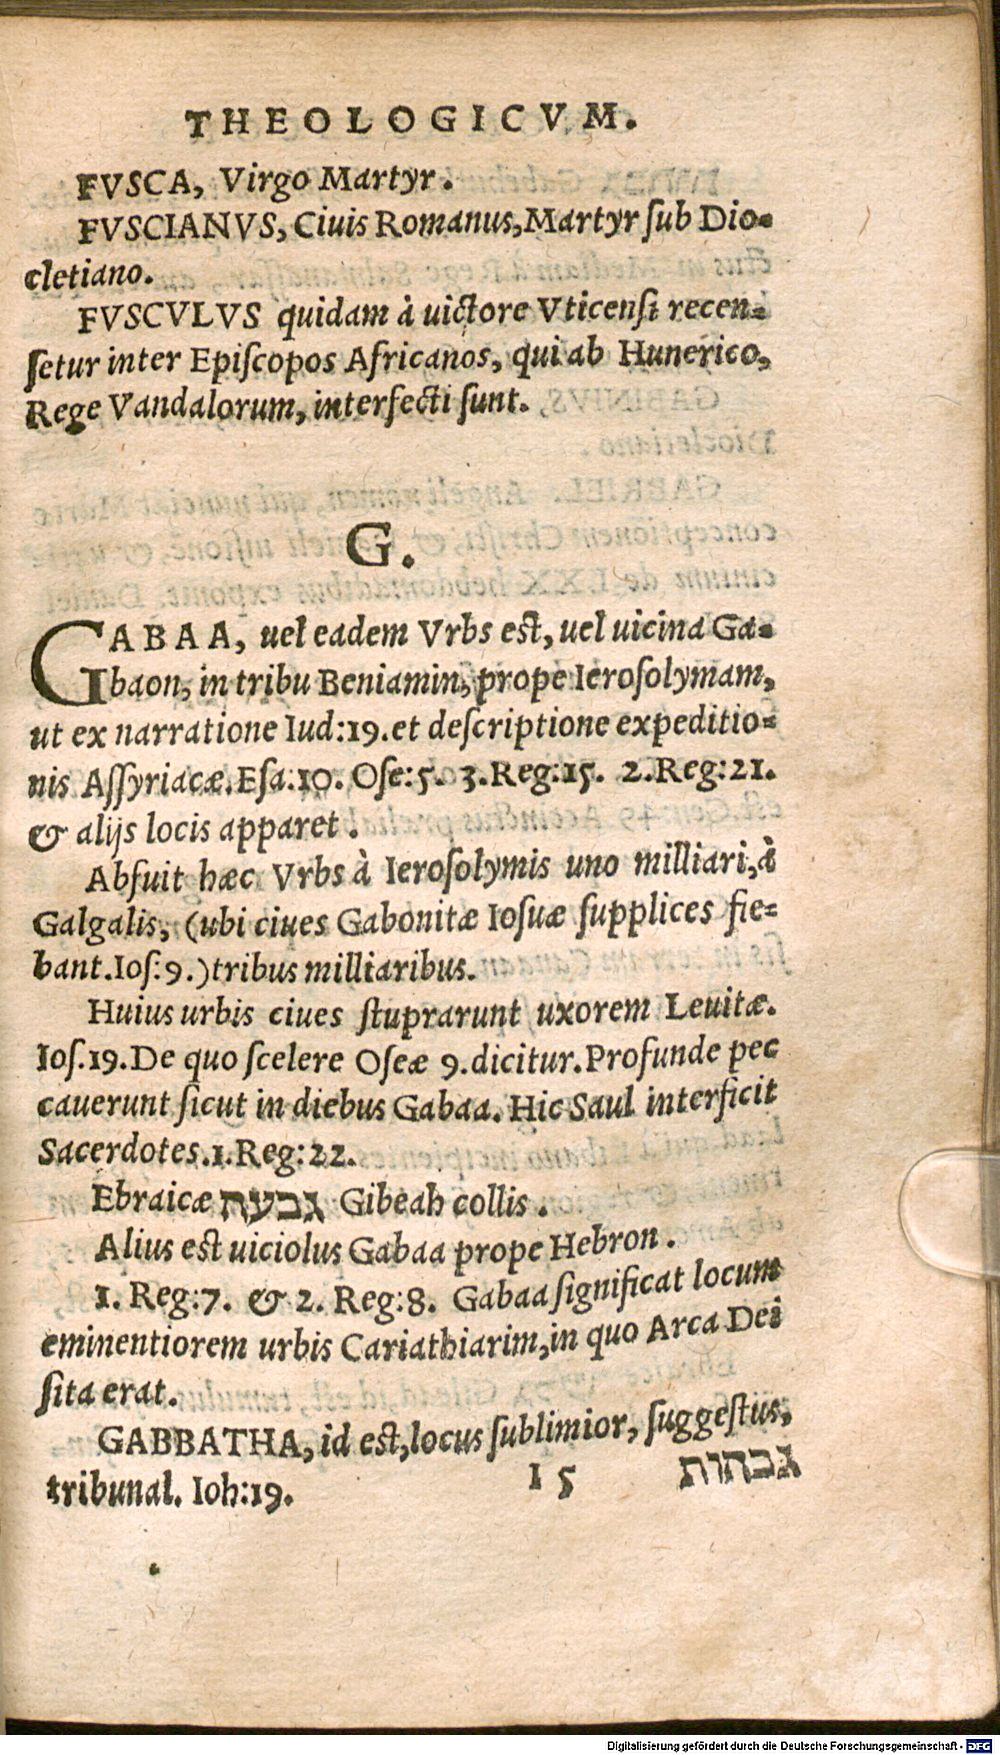 THEOLOGICVM.
FVSCA, Virgo Martyr.
FVSCIANVS, Ciuis Romanus, Martyr ſub Dio-
cletiano.
FVSCVLVS quidam à uictore Vticenſi recen-
ſetur inter Epiſcopos Africanos, qui ab Hunerico,
Rege Vandalorum, interfecti ſunt.
G.
GABAA, uel eadem Vrbs est, uel uicina Ga-
baon, in tribu Beniamin, prope Ieroſolymam,
ut ex narratione Iud:19. et deſcriptione expeditio-
nis Aſſyriacæ. Eſa:10. Oſe:5. 3.Reg:15. 2.Reg:21.
& alijs locis apparet.
Abfuit hæc Vrbs à Ieroſolymis uno milliari, à
Galgalis, (ubi ciues Gabonitæ Ioſuæ ſupplices fie-
bant. Ioſ:9.) tribus milliaribus.
Huius urbis ciues ſtuprarunt uxorem Leuitæ.
Ioſ.19. De quo ſcelere Oſeæ 9. dicitur. Profunde pec
cauerunt ſicut in diebus Gabaa. Hic Saul interficit
Sacerdotes. 1.Reg:22.
Ebraicæ גבעה Gibeah collis.
Alius est uiciolus Gabaa prope Hebron.
1. Reg:7. & 2. Reg:8. Gabaa ſignificat locum
eminentiorem urbis Cariathiarim, in quo Arca Dei
ſita erat.
GABBATHA, id est, locus ſublimior, ſuggeſtus,
tribunal. Ioh:19.
15 גבהות
Digitalisierung gefördert durch die Deutsche Forschungsgemeinschaft - DFG